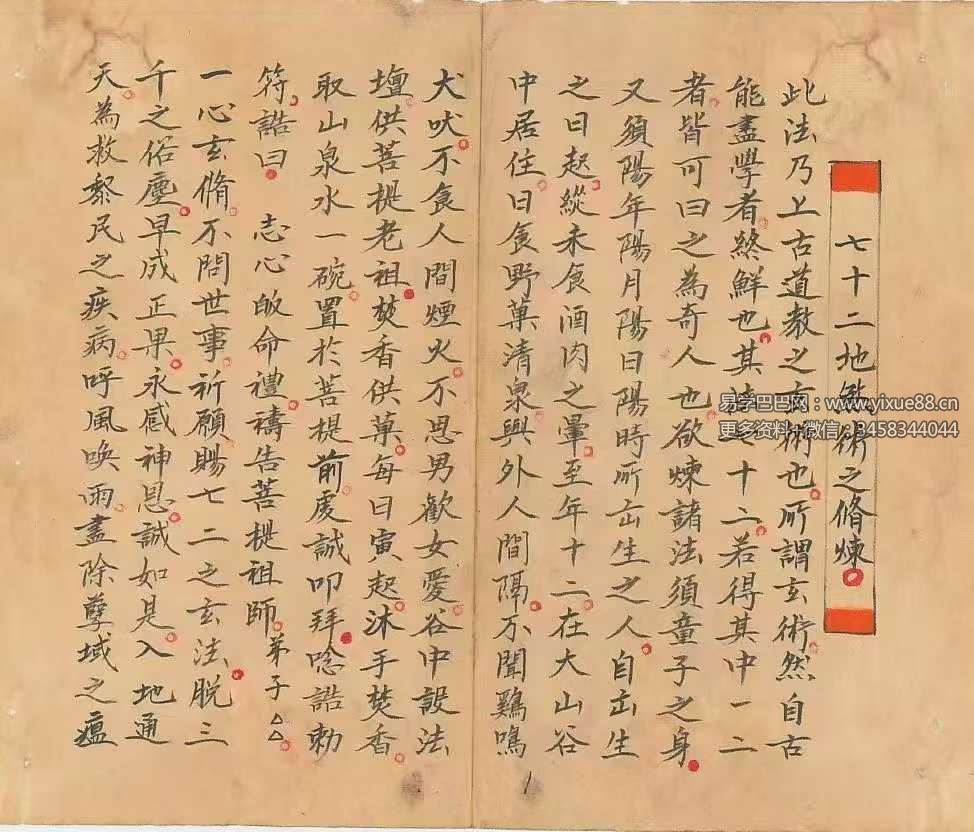 七十二地煞術之脩煉
此法乃上古道教之玄術也所謂玄術然自古
能盡學者終鮮也其法七十二若得其中一二
者皆可曰之為奇人也欲煉諸法須童子之身
又須陽年陽月陽日陽時所出生之人自出生
之日起縱未食酒肉之暈至年十二在大山谷
中居住日食野菓清泉與外人間隔不聞鷄鳴
犬吠不食人間煙火不思男歡女愛谷中設法
壇供菩提老祖焚香供菓每日寅起沐手焚香
取山泉水一碗置於菩提前虔誠叩拜唸誥勅
符誥曰 志心皈命禮禱告菩提祖師弟子△△
一心玄脩不問世事祈願賜七二之玄法脫三
千之俗塵早成正果永感神恩誠如是入地通
天為救黎民之疾病呼風喚雨盡除孽域之瘟
易学巴巴网：www.yixue88.cn
更多资料+微信：3458344044